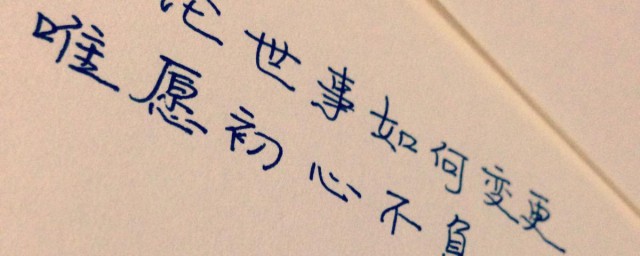 世事如何变更
唯愿初心不负